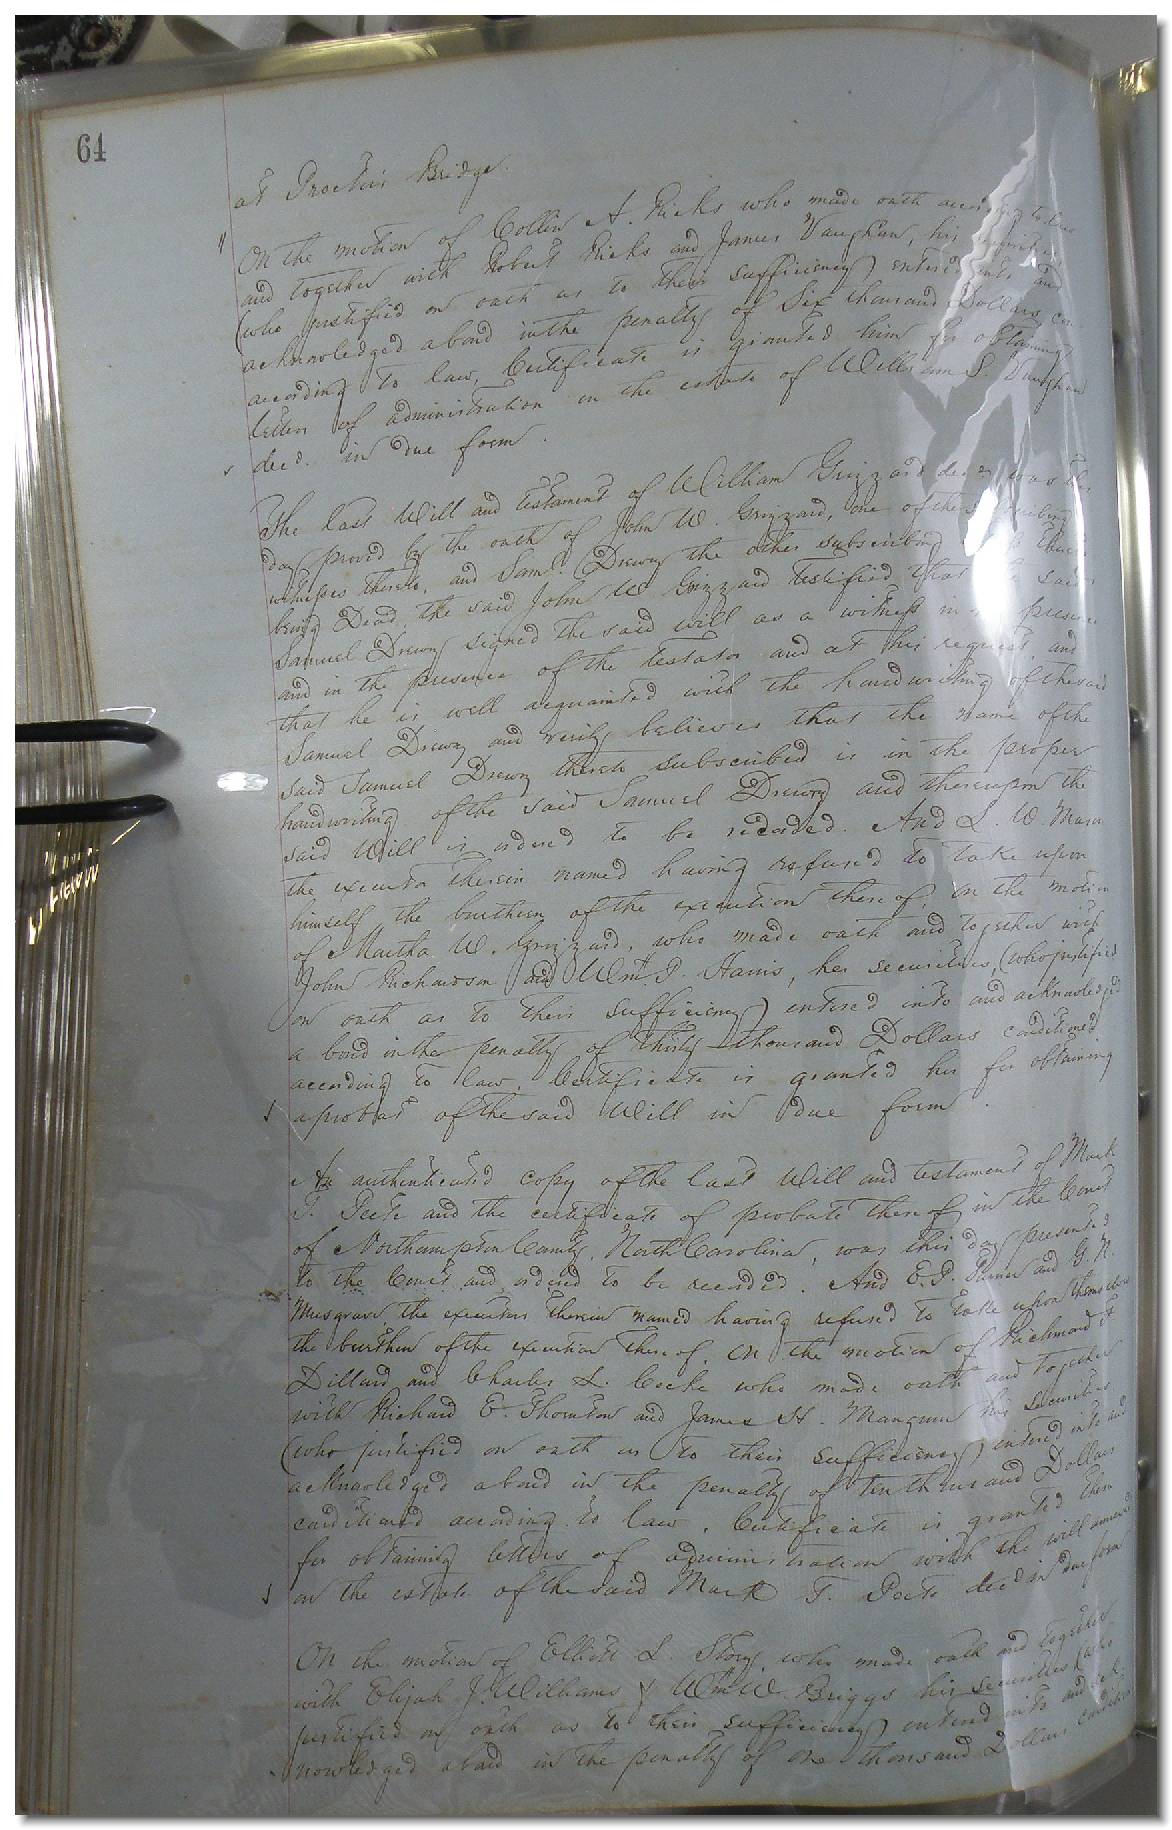 64
at Proctor's Bridge.
On the motion of Collin A. Ricks who made oath according to law
and together with Robert Ricks and James Vaughan, his securities
(who justified on oath as to their sufficiency) entered into and
acknowledged a bond in the penalty of Six thousand Dollars con
according to law, Certificate is granted him for obtaining
letters of administration on the estate of William S. Vaughan
decd. in due form.
The last Will and testament of William Grizzard decd was this
day proved by the oath of John W. Grizzard, one of the subscribing
witnesses thereto, and Saml. Drewry the other subscribing
being Dead, the said John W Grizzard testified that the said
Samuel Drewry signed the said will as a witness in his presence
and in the presence of the testator and at his request and
that he is well acquainted with the handwriting of the said
Samuel Drewry and verily believes that the name of the
said Samuel Drewry thereto subscribed is in the proper
handwriting of the said Samuel Drewry and thereupon the
said Will is ordered to be recorded. And L. W. Mason
the executor therein named having refused to take upon
himself the burthen of the execution thereof, On the motion
of Martha W. Grizzard, who made oath and together with
John Richardson and Wm J. Harris, her securities, (who justified
on oath as to their sufficiency) entered into and acknowledged
a bond in the penalty of thirty thousand Dollars conditioned
according to law, Certificate is granted her for obtaining
a probat of the said Will in due form.
An authenticated copy of the last Will and testament of Mark
T. Peete and the certificate of probate thereof in the Court
of Northampton County, North Carolina, was this day presented
to the Court and ordered to be recorded. And E. P. and G. N.
Musgrave, the executors therein named having refused to take upon themselves
the burthen of the execution thereof, On the motion of Richmond F
Dillard and Charles L. Cocke who made oath and together
with Richard E. Thornton and James H. Mangum his securities
(who justified on oath as to their sufficiency) entered into and
acknowledged a bond in the penalty of ten thousand Dollars
conditioned according to law, Certificate is granted them
for obtaining letters of administration with the will annexed
on the estate of the said Mark T. Peete decd in due form
On the motion of Elliott L. Story, who made oath and together
with Elijah J. Williams & Wm W. Briggs his securities (who
justified on oath as to their sufficiency) entered into and ack-
nowledged a bond in the penalty of one thousand Dollars condition